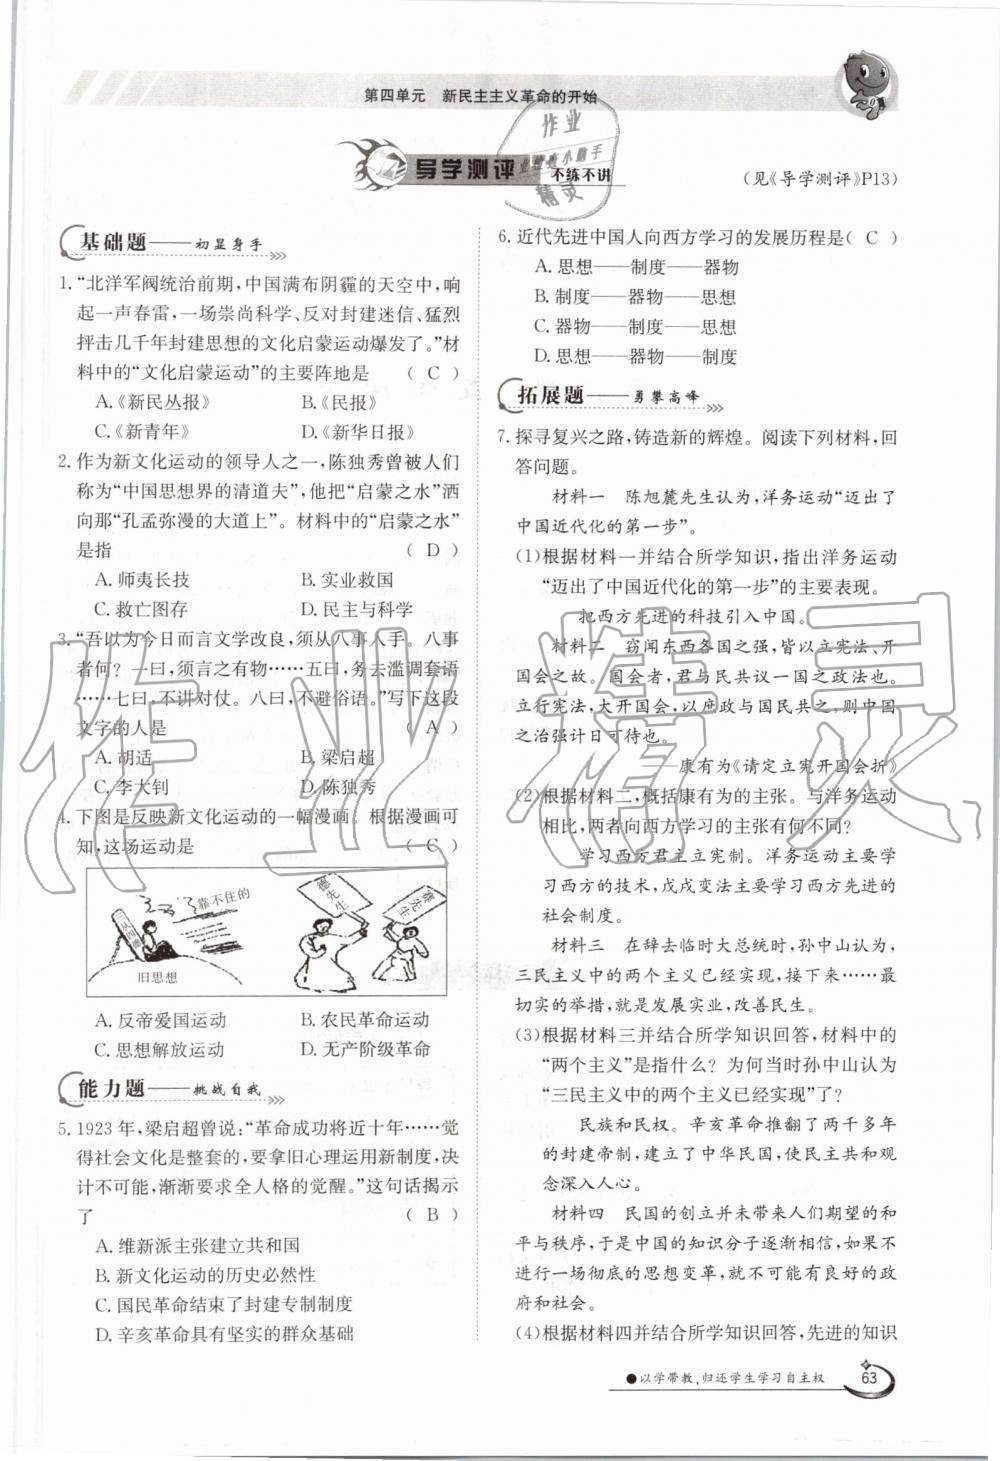 第四单元 新民主主义革命的开始
导学测评 不练不讲
(见《导学测评》P13)
基础题——初显身手
1.“北洋军阀统治前期,中国满布阴霾的天空中,响
起一声春雷,一场崇尚科学、反对封建迷信、猛烈
抨击几千年封建思想的文化启蒙运动爆发了。”材
料中的“文化启蒙运动”的主要阵地是 ( C )
A.《新民丛报》 B.《民报》
C.《新青年》 D.《新华日报》
2.作为新文化运动的领导人之一,陈独秀曾被人们
称为“中国思想界的清道夫”,他把“启蒙之水”洒
向那“孔孟弥漫的大道上”。材料中的“启蒙之水”
是指 ( D )
A.师夷长技 B.实业救国
C.救亡图存 D.民主与科学
3.“吾以为今日而言文学改良,须从八事入手。八事
者何?一曰,须言之有物……五曰,务去滥调套语
……七曰,不讲对仗。八曰,不避俗语。”写下这段
文字的人是 ( A )
A.胡适 B.梁启超
C.李大钊 D.陈独秀
4.下图是反映新文化运动的一幅漫画。根据漫画可
知,这场运动是 ( C )
靠不住的
旧思想
德先生
赛先生
A.反帝爱国运动 B.农民革命运动
C.思想解放运动 D.无产阶级革命
能力题——挑战自我
5.1923年,梁启超曾说:“革命成功将近十年……觉
得社会文化是整套的,要拿旧心理运用新制度,决
计不可能,渐渐要求全人格的觉醒。”这句话揭示
了 ( B )
A.维新派主张建立共和国
B.新文化运动的历史必然性
C.国民革命结束了封建专制制度
D.辛亥革命具有坚实的群众基础
6.近代先进中国人向西方学习的发展历程是( C )
A.思想——制度——器物
B.制度——器物——思想
C.器物——制度——思想
D.思想——器物——制度
拓展题——勇攀高峰
7.探寻复兴之路,铸造新的辉煌。阅读下列材料,回
答问题。
材料一 陈旭麓先生认为,洋务运动“迈出了
中国近代化的第一步”。
(1)根据材料一并结合所学知识,指出洋务运动
“迈出了中国近代化的第一步”的主要表现。
把西方先进的科技引入中国。
材料二 窃闻东西各国之强,皆以立宪法、开
国会之故。国会者,君与民共议一国之政法也。
立行宪法,大开国会,以庶政与国民共之,则中国
之治强计日可待也。
——康有为《请定立宪开国会折》
(2)根据材料二,概括康有为的主张。与洋务运动
相比,两者向西方学习的主张有何不同?
学习西方君主立宪制。洋务运动主要学
习西方的技术,戊戌变法主要学习西方先进的
社会制度。
材料三 在辞去临时大总统时,孙中山认为,
三民主义中的两个主义已经实现,接下来……最
切实的举措,就是发展实业,改善民生。
(3)根据材料三并结合所学知识回答,材料中的
“两个主义”是指什么?为何当时孙中山认为
“三民主义中的两个主义已经实现”了?
民族和民权。辛亥革命推翻了两千多年
的封建帝制,建立了中华民国,使民主共和观
念深入人心。
材料四 民国的创立并未带来人们期望的和
平与秩序,于是中国的知识分子逐渐相信,如果不
进行一场彻底的思想变革,就不可能有良好的政
府和社会。
(4)根据材料四并结合所学知识回答,先进的知识
●以学带教,归还学生学习自主权
63
作业精灵